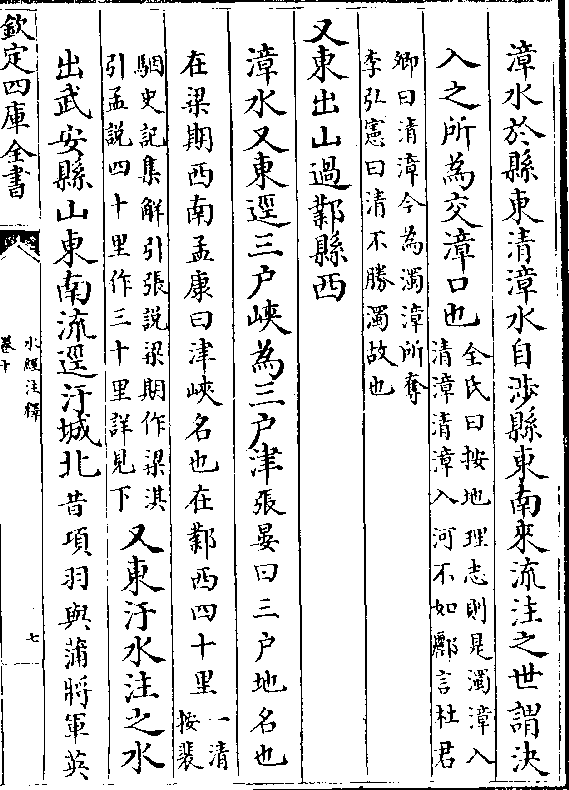 漳水於縣東清漳水自涉縣東南來流注之世謂決
入之所為交漳口也
全氏曰按地理志則是濁漳入
清漳清漳入河不如酈言杜君
卿曰清漳今為濁漳所奪
李弘憲曰清不勝濁故也
又東出山過鄴縣西
漳水又東逕三户峽為三户津張晏曰三户地名也
在梁期西南孟康曰津峽名也在鄴西四十里
一清
按裴
駰史記集解引張說梁期作梁淇
引孟說四十里作三十里詳見下
又東汙水注之水
出武安縣山東南流逕汙城北昔項羽與蒲將軍英
欽定四庫全書
水經注釋
卷十
七